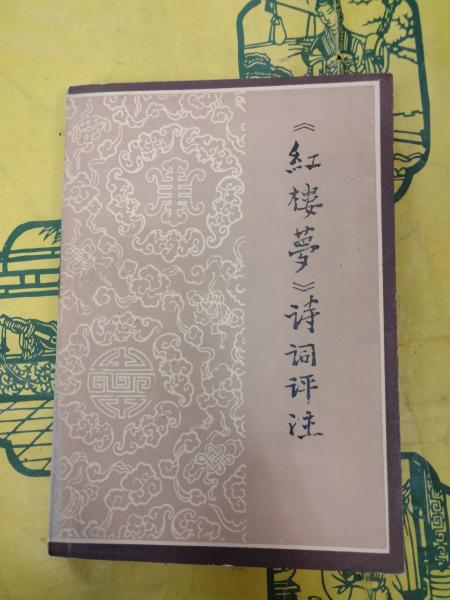 《紅楼夢》诗词评注